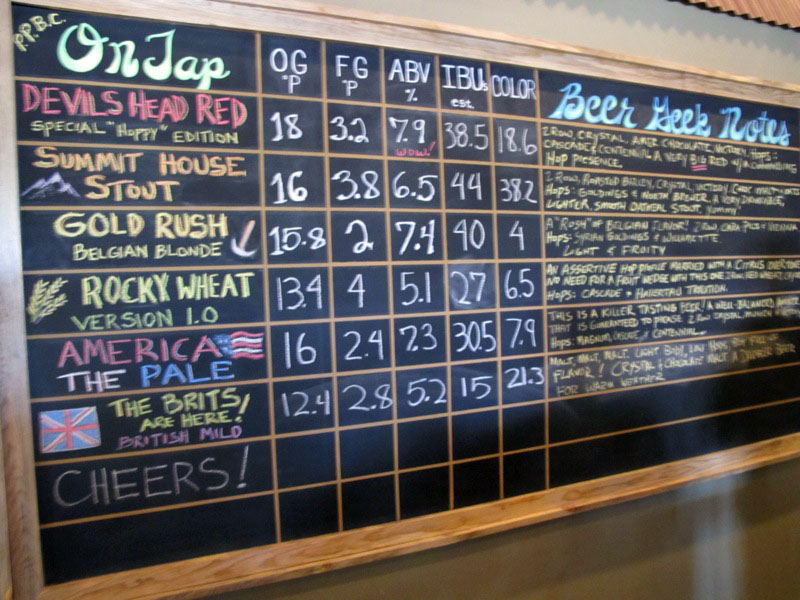 P.P.B.C.
On Tap
OG °P
FG °P
ABV %
IBUs est.
COLOR
Beer Geek Notes
DEVILS HEAD RED
SPECIAL "HOPPY" EDITION
18 3.2 7.9 38.5 18.6
WOW!
2 ROW, CRYSTAL, AMER CHOCOLATE, VICTORY. HOPS:
CASCADE & CENTENNIAL. A VERY BIG RED w/ A COMMANDING
HOP PRESENCE.
SUMMIT HOUSE
STOUT
16 3.8 6.5 44 38.2
2 ROW, ROASTED BARLEY, CRYSTAL, VICTORY, CHOC MALT
HOPS: GOLDINGS & NORTH BREWER. A VERY DRINKABLE,
LIGHTER, SMOOTH OATMEAL STOUT. YUMMY
GOLD RUSH
BELGIAN BLONDE
15.8 2 7.4 40 4
A "RUSH" OF BELGIAN FLAVOR! 2 ROW, CARA PILS & VIENNA
HOPS: STYRIAN GOLDINGS & WILLAMETTE.
LIGHT & FRUITY
ROCKY WHEAT
VERSION 1.0
13.4 4 5.1 27 6.5
AN ASSERTIVE HOP PROFILE MARRIED WITH A CITRUS OVERTONE
NO NEED FOR A FRUIT WEDGE WITH THIS ONE
HOPS: CASCADE & HALLERTAU TRADITION.
AMERICA
THE PALE
16 2.4 7.3 30.5 7.9
THIS IS A KILLER TASTING BEER! A WELL-BALANCED
THAT IS GUARANTEED TO PLEASE. 2 ROW, CRYSTAL, MUNICH
HOPS: MAGNUM, CENTENNIAL.
THE BRITS
ARE HERE!
BRITISH MILD
12.4 2.8 5.2 15 21.3
MALT, MALT, MALT. LIGHT BODY, LOW HOPS, BUT FULL OF
FLAVOR! CRYSTAL & CHOCOLATE MALT. A DARKER BEER
FOR WARM WEATHER
CHEERS!